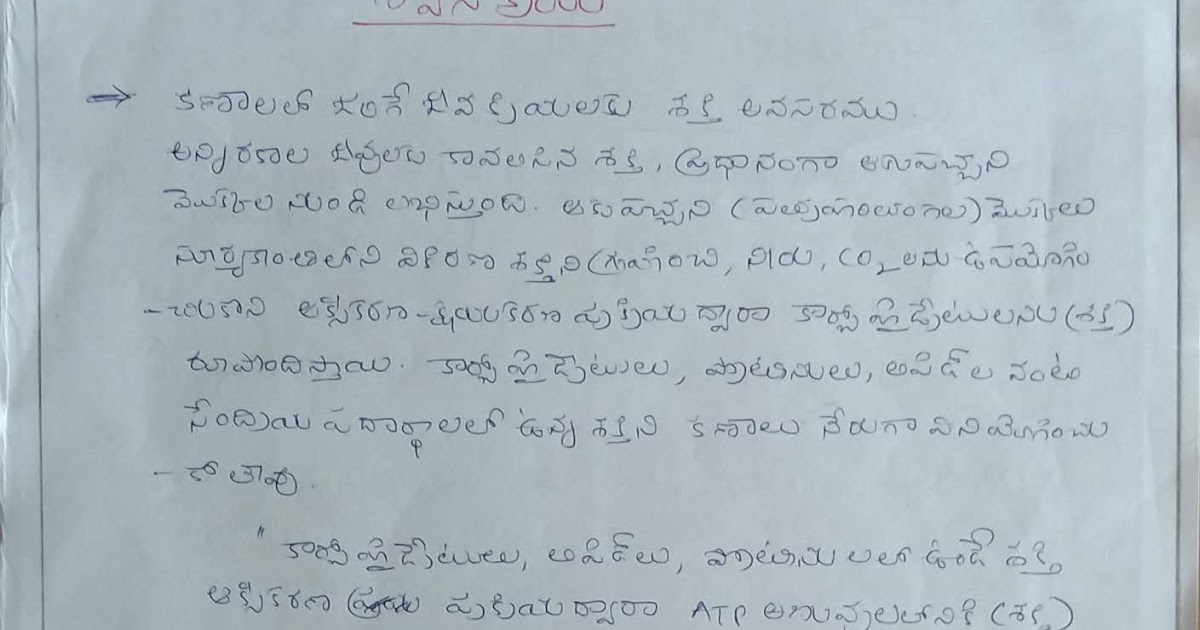 → కణాలలో జరిగే జీవ క్రియలకు శక్తి అవసరము.
అన్ని రకాల జీవులకు కావలసిన శక్తి, ప్రధానంగా ఆకుపచ్చని
మొక్కల నుండి లభిస్తుంది. ఆకుపచ్చని (పత్రహరితంగల) మొక్కలు
సూర్యకాంతిలోని వికిరణ శక్తిని గ్రహించి, నీరు, CO₂ లను ఉపయోగిం
-చుకొని ఆక్సీకరణ-క్షయకరణ ప్రక్రియ ద్వారా కార్బోహైడ్రేటులను (శక్తి)
రూపొందిస్తాయి. కార్బోహైడ్రేటులు, ప్రొటీనులు, లిపిడ్ ల వంటి
సేంద్రియ పదార్థాలలో ఉన్న శక్తిని కణాలు నేరుగా వినియోగించు
-కోలేవు.
" కార్బోహైడ్రేటులు, లిపిడ్‌లు, ప్రొటీను లలో ఉండే శక్తి
ఆక్సీకరణ ప్రక్రియ ద్వారా ATP అణువులలోనికి (శక్తి)